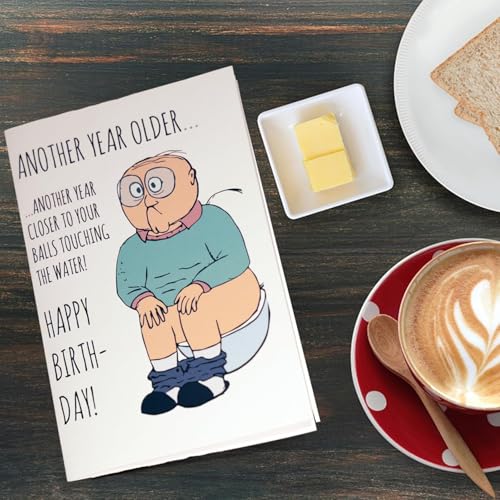 ANOTHER YEAR OLDER...
...ANOTHER YEAR
CLOSER TO YOUR
BALLS TOUCHING
THE WATER!
HAPPY
BIRTH-
DAY!